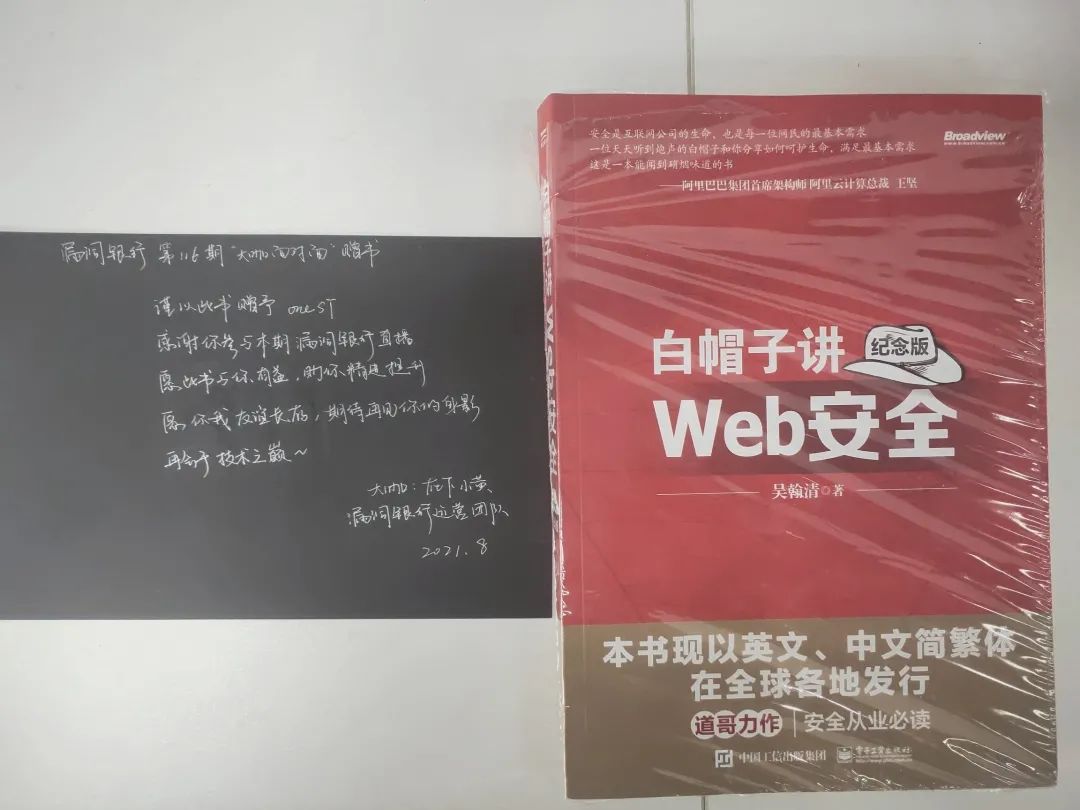 漏洞银行 第116期"大咖面对面"赠书
谨以此书赠予 oneST
感谢你参与本期漏洞银行直播
愿此书与你有益，助你精进提升
愿你我友谊长存，期待再见你的身影
再会于技术之巅~
大咖：在下小黄
漏洞银行运营团队
2021.8
安全是互联网公司的生命，也是每一位网民的最基本需求
一位天天听到炮声的白帽子和你分享如何呵护生命，满足最基本需求
这是一本能闻到硝烟味道的书
——阿里巴巴集团首席架构师 阿里云计算总裁 王坚
Broadview
www.broadview.com.cn
白帽子讲
纪念版
Web安全
吴翰清◎著
本书现以英文、中文简繁体
在全球各地发行
道哥力作 | 安全从业必读
中国工信出版集团 电子工业出版社